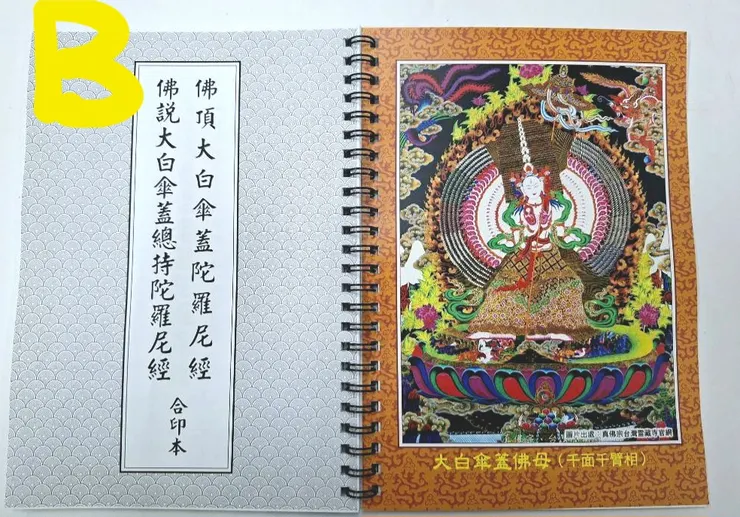 B
佛頂大白傘蓋陀羅尼經
佛説大白傘蓋總持陀羅尼經
合印本
圖片出處：真佛宗台灣雷藏寺官網
大白傘蓋佛母(千面千臂相)